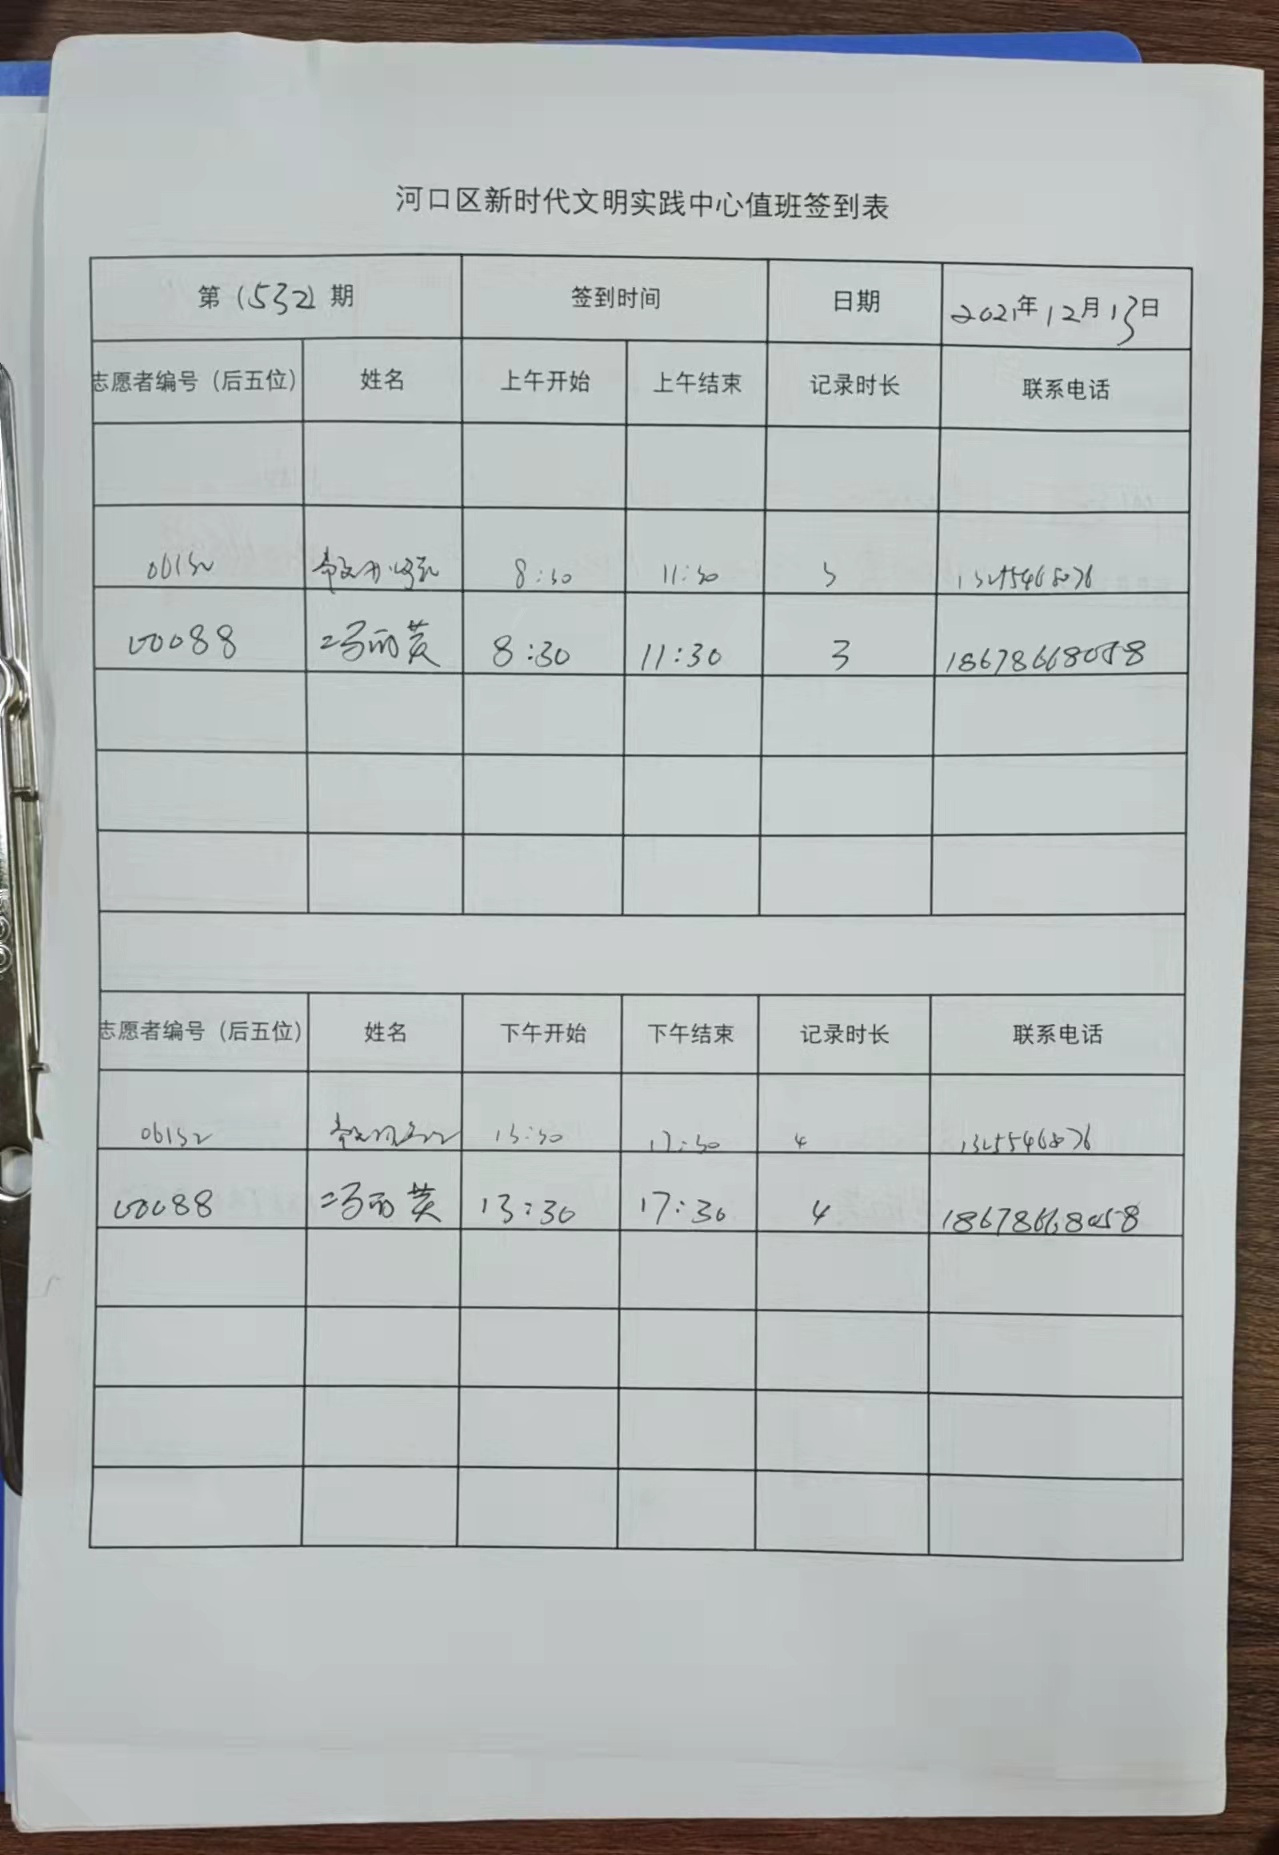 河口区新时代文明实践中心值班签到表
第（532）期 签到时间 日期 2021年12月13日
志愿者编号（后五位） 姓名 上午开始 上午结束 记录时长 联系电话
06132 8:30 11:30 3
00088 冯丽英 8:30 11:30 3 18678668058
志愿者编号（后五位） 姓名 下午开始 下午结束 记录时长 联系电话
06132 13:30 17:30 4
00088 冯丽英 13:30 17:30 4 18678668058